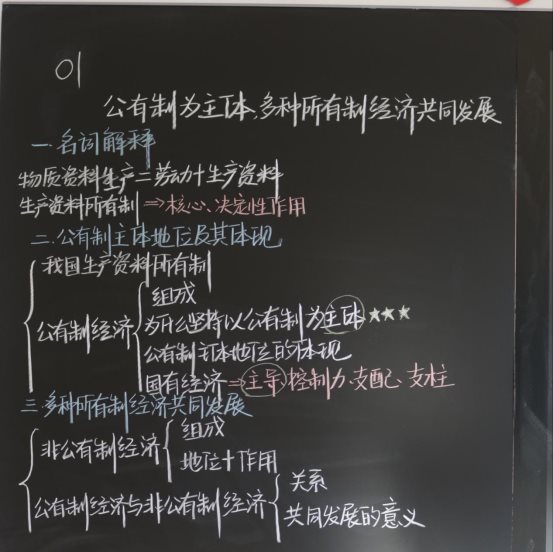 01
公有制为主体,多种所有制经济共同发展
一.名词解释
物质资料生产=劳动力+生产资料
生产资料所有制⇒核心、决定性作用
二.公有制主体地位及其体现
我国生产资料所有制
公有制经济
组成
为什么坚持以公有制为主体★★★
公有制主体地位的体现
国有经济⇒主导 控制力、支配、支柱
三.多种所有制经济共同发展
非公有制经济
组成
地位+作用
公有制经济与非公有制经济
关系
共同发展的意义